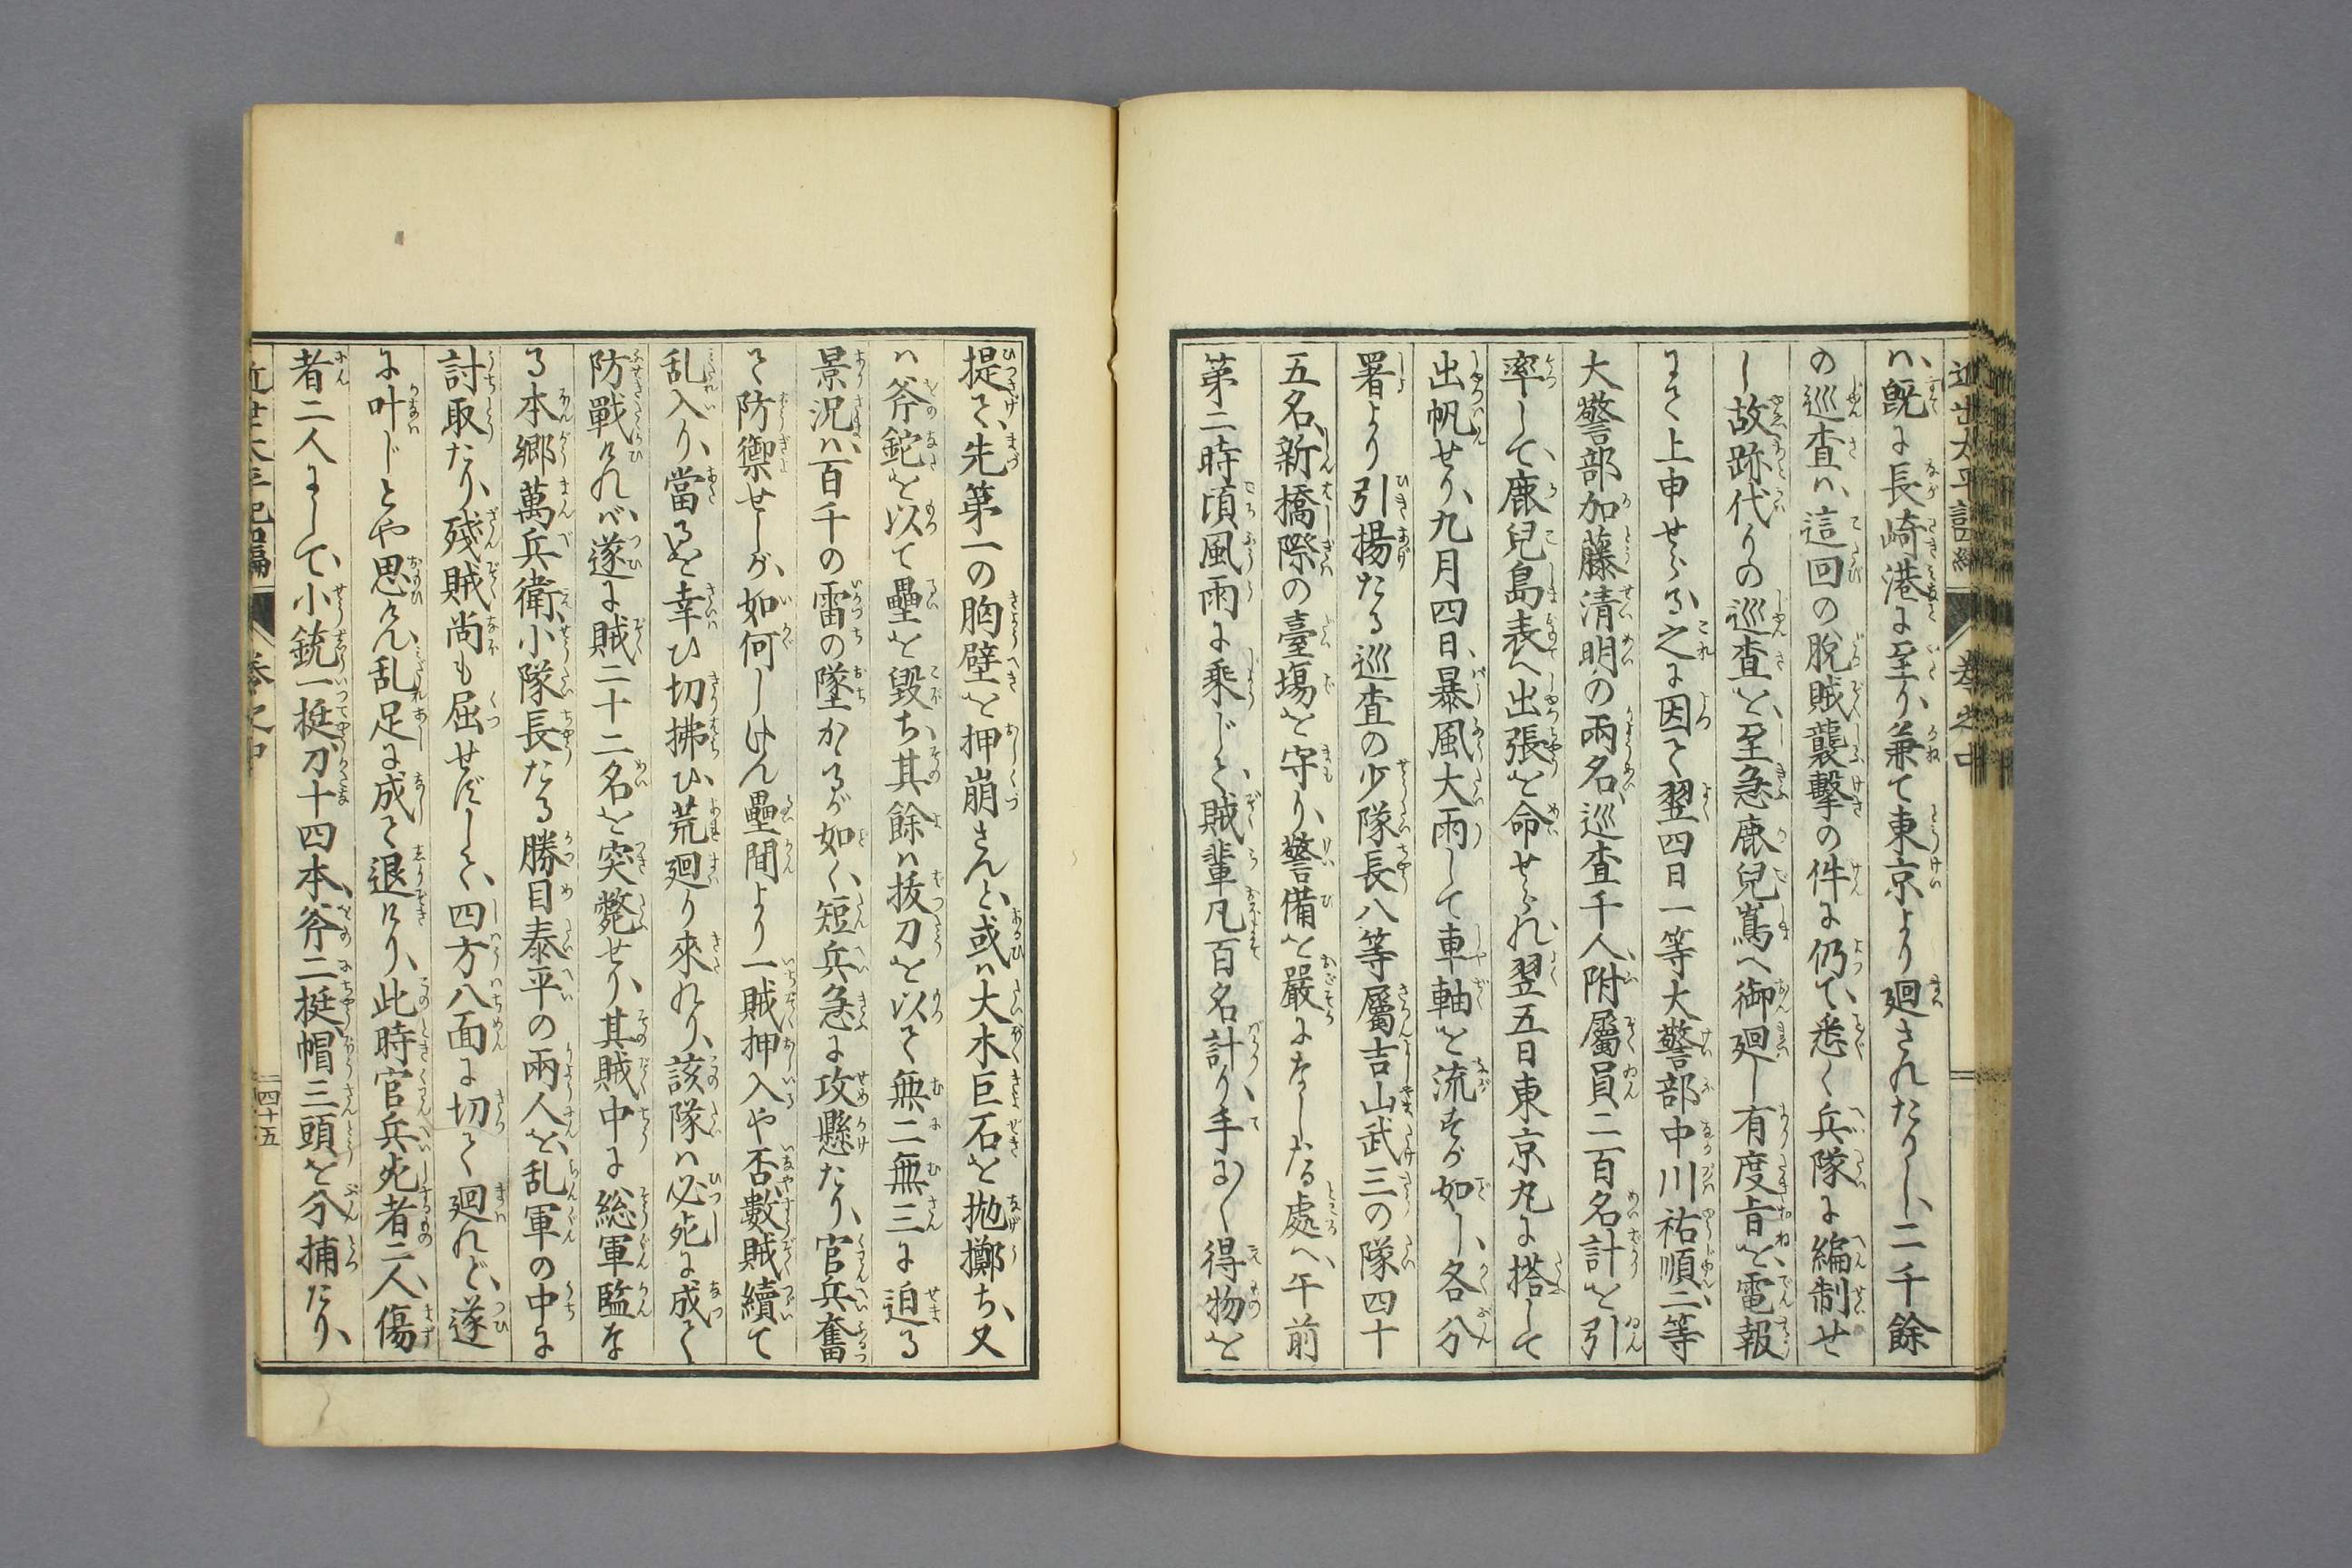 ハ、既に長崎港に至り、兼て東京より廻されたりし、二千餘
の巡査ハ、這回の脱賊襲撃の件に仍て、悉く兵隊に編制せ
し故、跡代りの巡査を、至急鹿兒嶌へ御廻し有度旨を、電報
にて上申せらる、之に因て翌四日一等大警部中川祐順、二等
大警部加藤清明の兩名、巡査千人、附屬員二百名計を引
率して、鹿兒島表へ出張を命せられ、翌五日東京丸に搭して
出帆せり、九月四日、暴風大雨して車軸を流すが如し、各分
署より引揚たる巡査の少隊長八等屬吉山武三の隊四十
五名、新橋際の臺塲を守り、警備を嚴になしたる處へ、午前
第二時頃風雨に乘じて、賊輩凡百名計り、手に〳〵得物を
提て、先第一の胸壁を押崩さんと、或ハ大木巨石を抛擲ち、又
ハ斧鉈を以て壘を毀ち、其餘ハ抜刀を以て無二無三に迫る
景況ハ、百千の雷の墜かるが如く、短兵急に攻懸たり、官兵奮
て防禦せしが、如何しけん壘間より一賊押入や否數賊續て
乱入り、當るを幸ひ切拂ひ、荒廻り來れり、該隊ハ必死に成て
防戰けれバ、遂に賊二十二名を突斃せり、其賊中に総軍監な
る本郷萬兵衛、小隊長たる勝目泰平の兩人を、乱軍の中に
討取たり、殘賊尚も屈せずして、四方八面に切て廻れど、遂
に叶じとや思けん、乱足に成て退けり、此時官兵死者二人、傷
者二人にして、小銃一挺刀十四本、斧二挺帽三頭を分捕たり、
近世太平記四編 巻之中 四十五